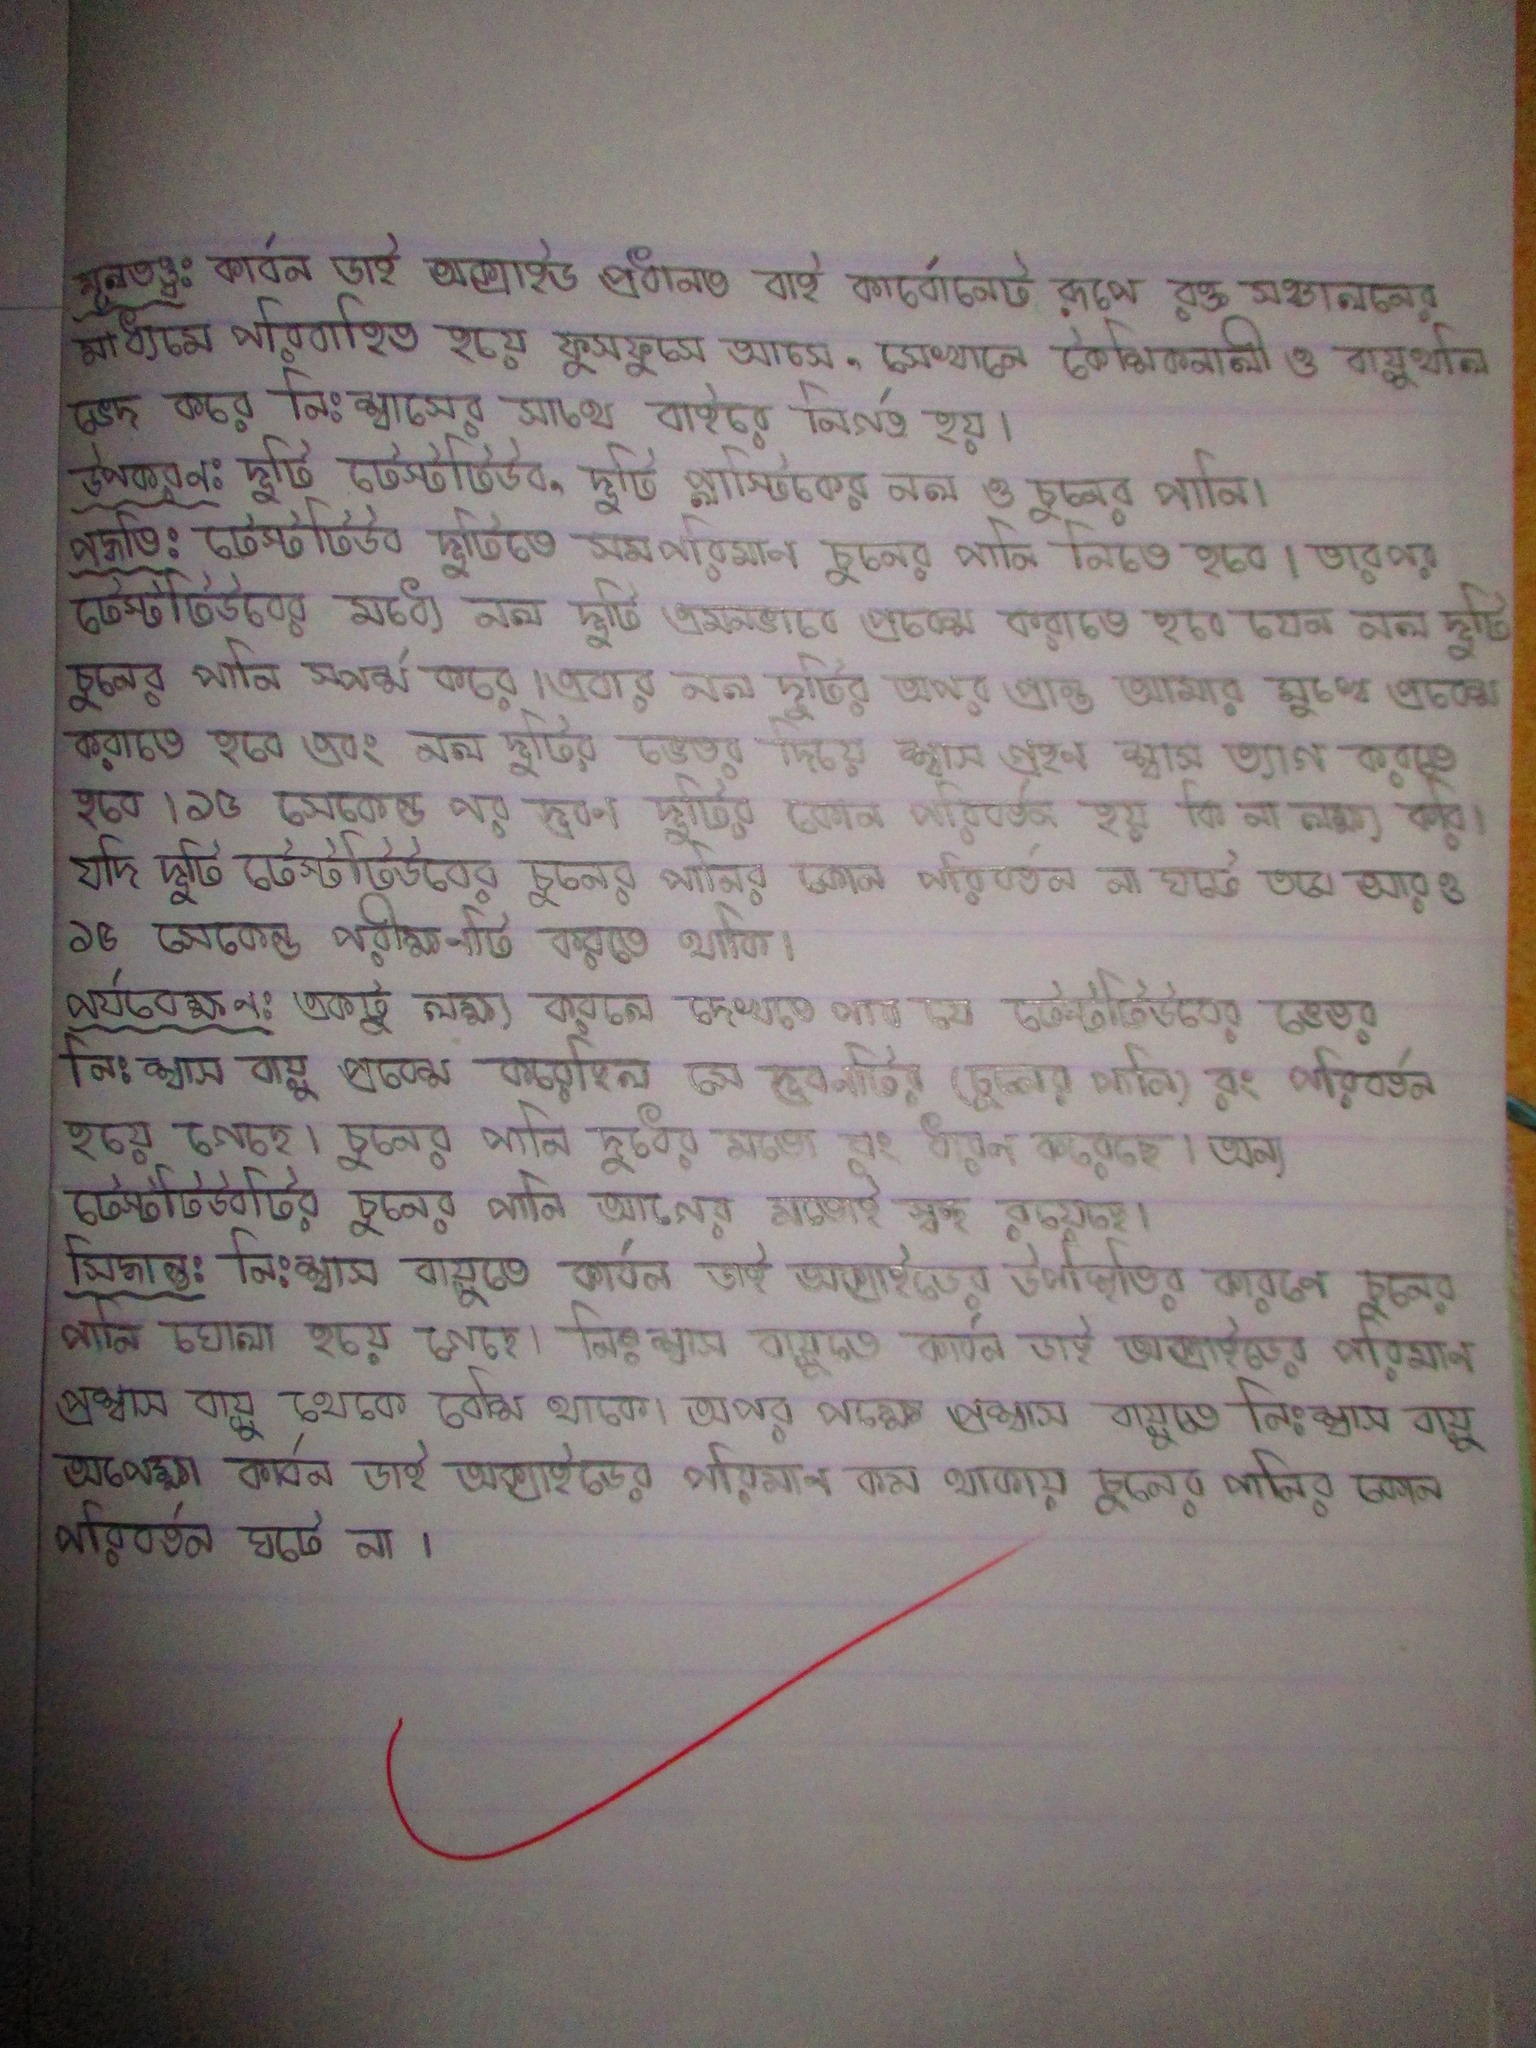 মূলতত্ত্ব: কার্বন ডাই অক্সাইড প্রধানত বাই কার্বোনেট রূপে রক্ত সঞ্চালনের
মাধ্যমে পরিবাহিত হয়ে ফুসফুসে আসে, সেখানে কৈশিকনালী ও বায়ুথলি
ভেদ করে নিঃশ্বাসের সাথে বাইরে নির্গত হয়।
উপকরণ: দুটি টেস্টটিউব, দুটি প্লাস্টিকের নল ও চুনের পানি।
পদ্ধতি: টেস্টটিউব দুটিতে সমপরিমাণ চুনের পানি নিতে হবে। তারপর
টেস্টটিউবের মধ্যে নল দুটি এমনভাবে প্রবেশ করাতে হবে যেন নল দুটি
চুনের পানি স্পর্শ করে। এবার নল দুটির অপর প্রান্ত আমার মুখে প্রবেশ
করাতে হবে এবং নল দুটির ভেতর দিয়ে শ্বাস গ্রহণ শ্বাস ত্যাগ করতে
হবে। ১৫ সেকেন্ড পর দ্রবণ দুটির কোন পরিবর্তন হয় কি না লক্ষ্য করি।
যদি দুটি টেস্টটিউবের চুনের পানির কোন পরিবর্তন না ঘটে তবে আরও
১৫ সেকেন্ড পরীক্ষণটি করতে থাকি।
পর্যবেক্ষণ: একটু লক্ষ্য করলে দেখতে পাব যে টেস্টটিউবের ভেতর
নিঃশ্বাস বায়ু প্রবেশ করেছিল সে দ্রবনটির (চুনের পানি) রং পরিবর্তন
হয়ে গেছে। চুনের পানি দুধের মতো রং ধারণ করেছে। অন্য
টেস্টটিউবটির চুনের পানি আগের মতোই স্বচ্ছ রয়েছে।
সিদ্ধান্ত: নিঃশ্বাস বায়ুতে কার্বন ডাই অক্সাইডের উপস্থিতির কারণে চুনের
পানি ঘোলা হয়ে গেছে। নিঃশ্বাস বায়ুতে কার্বন ডাই অক্সাইডের পরিমাণ
প্রশ্বাস বায়ু থেকে বেশি থাকে। অপর পক্ষে প্রশ্বাস বায়ুতে নিঃশ্বাস বায়ু
অপেক্ষা কার্বন ডাই অক্সাইডের পরিমাণ কম থাকায় চুনের পানির কোন
পরিবর্তন ঘটে না।